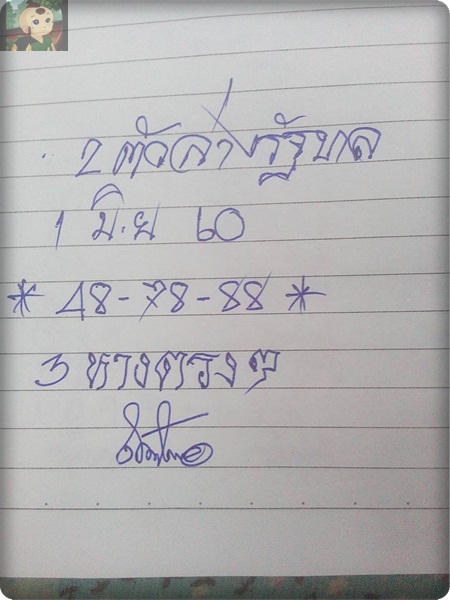 2 ตัวล่างรัฐบาล
1 มิ.ย 60
* 48-78-88 *
3 หางตรงๆ